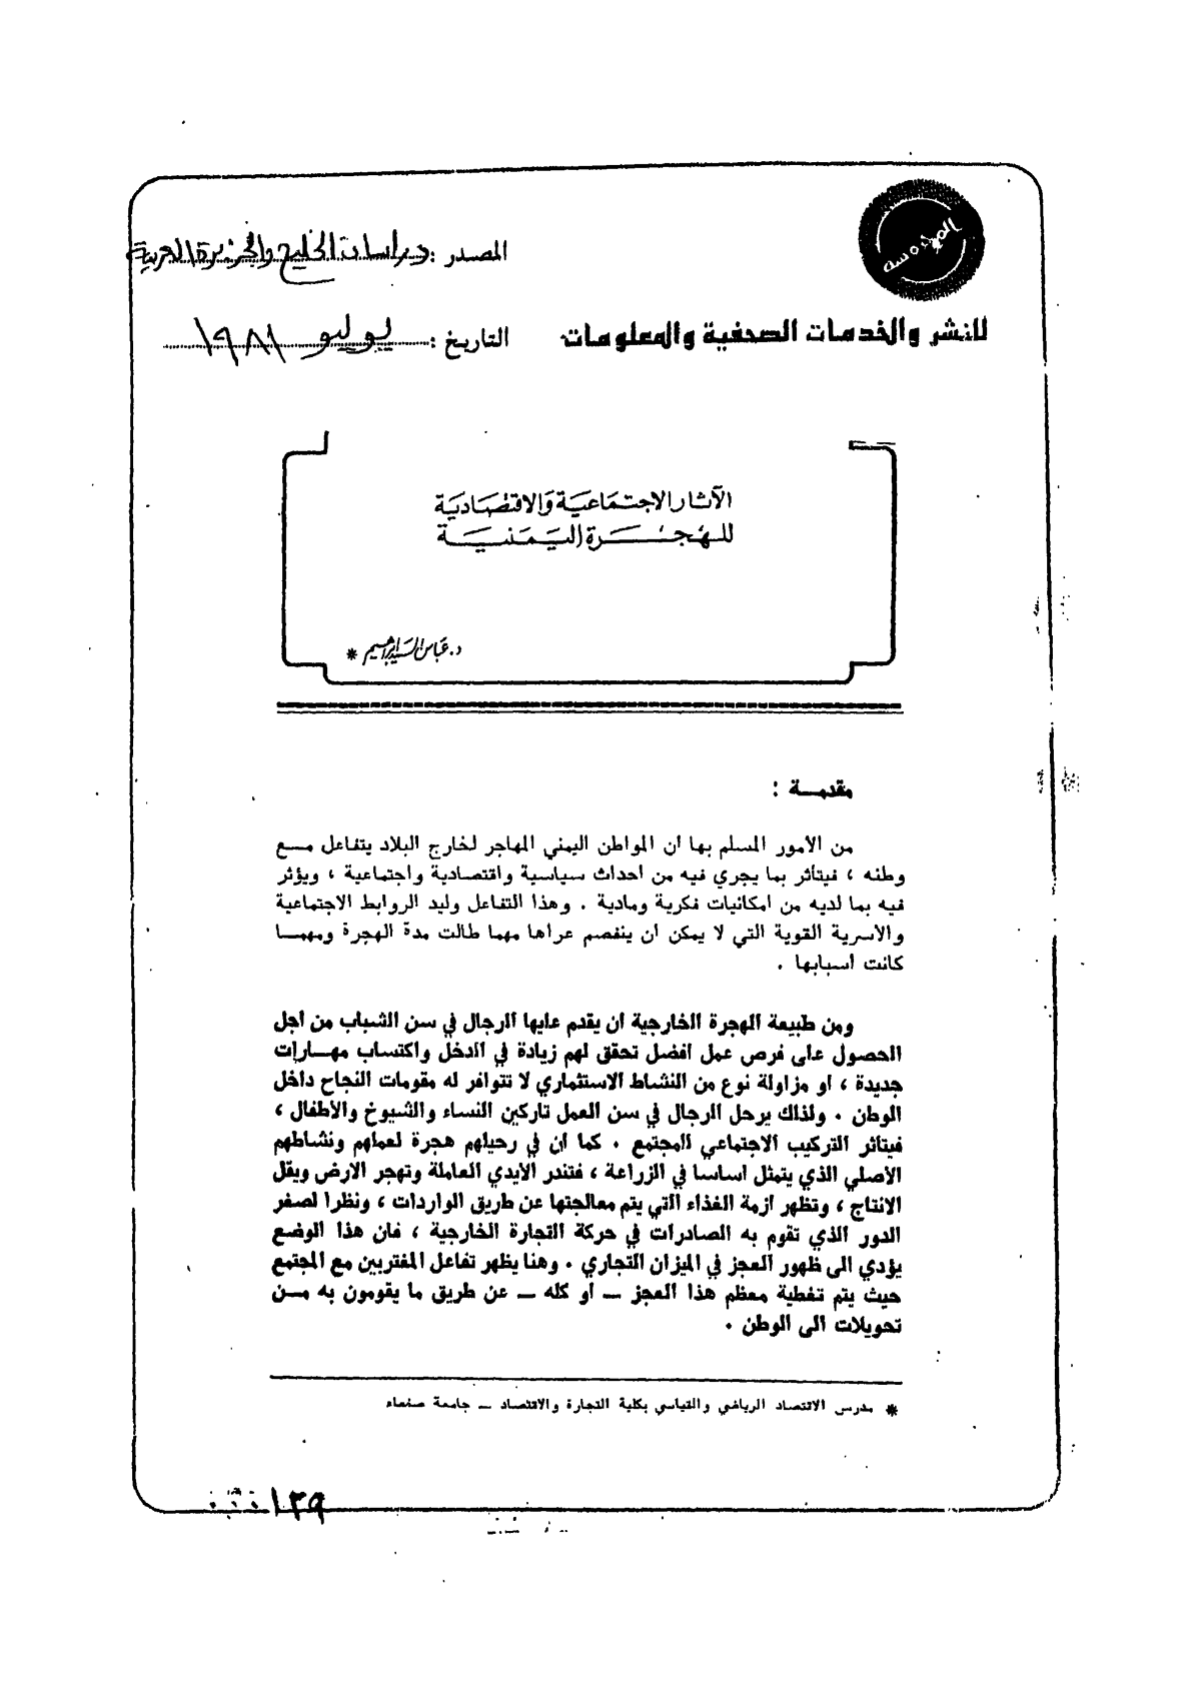 المصدر : دراسات الخليج والجزيرة العربية
للنشر والخدمات الصحفية والمعلومات
التاريخ : يوليو ١٩٨١
الآثار الاجتماعية والاقتصادية
للهجرة اليمنية
د. عباس السيد ابراهيم *
مقدمة :
من الامور المسلم بها ان المواطن اليمني المهاجر لخارج البلاد يتفاعل مع
وطنه ، فيتأثر بما يجري فيه من احداث سياسية واقتصادية واجتماعية ، ويؤثر
فيه بما لديه من امكانيات فكرية ومادية . وهذا التفاعل وليد الروابط الاجتماعية
والاسرية القوية التي لا يمكن ان ينفصم عراها مهما طالت مدة الهجرة ومهما
كانت اسبابها .
ومن طبيعة الهجرة الخارجية ان يقدم عليها الرجال في سن الشباب من اجل
الحصول على فرص عمل افضل تحقق لهم زيادة في الدخل واكتساب مهارات
جديدة ، او مزاولة نوع من النشاط الاستثماري لا تتوافر له مقومات النجاح داخل
الوطن . ولذلك يرحل الرجال في سن العمل تاركين النساء والشيوخ والاطفال ،
فيتأثر التركيب الاجتماعي المجتمع . كما ان في رحيلهم هجرة لعملهم ونشاطهم
الاصلي الذي يتمثل اساسا في الزراعة ، فتندر الايدي العاملة وتهجر الارض ويقل
الانتاج ، وتظهر ازمة الغذاء التي يتم معالجتها عن طريق الواردات ، ونظرا لصغر
الدور الذي تقوم به الصادرات في حركة التجارة الخارجية ، فان هذا الوضع
يؤدي الى ظهور العجز في الميزان التجاري . وهنا يظهر تفاعل المغتربين مع المجتمع
حيث يتم تغطية معظم هذا العجز ــ او كله ــ عن طريق ما يقومون به من
تحويلات الى الوطن .
* مدرس الاقتصاد الرياضي والقياسي بكلية التجارة والاقتصاد ــ جامعة صنعاء
١٣٩